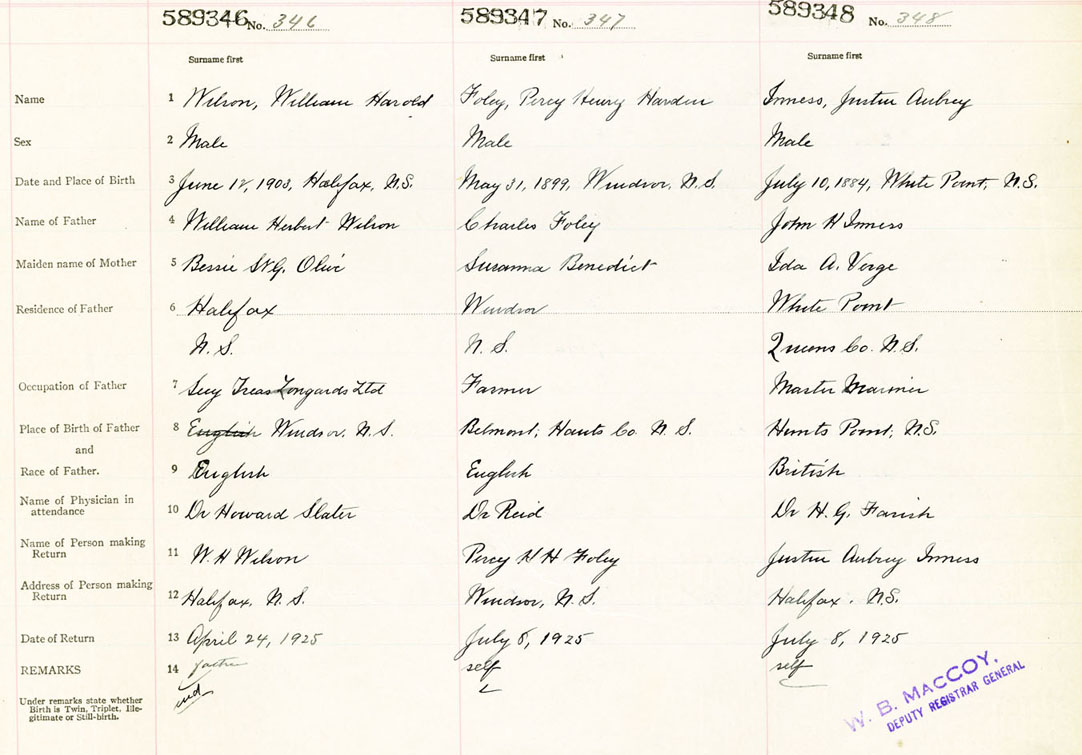 589346 No. 346 589347 No. 347 589348 No. 348
Surname first Surname first Surname first
Name 1 Wilson, William Harold Foley, Percy Henry Harden Inness, Justin Aubrey
Sex 2 Male Male Male
Date and Place of Birth 3 June 12, 1903, Halifax, N.S. May 31, 1899, Windsor, N.S. July 10, 1884, White Point, N.S.
Name of Father 4 William Herbert Wilson Charles Foley John H Inness
Maiden name of Mother 5 Bessie St G. Susanna Benedict Ida A. Verge
Residence of Father 6 Halifax Windsor White Point
N. S. N. S. Queens Co. N.S.
Occupation of Father 7 Secy Treas Longards Ltd Farmer Master Mariner
Place of Birth of Father 8 English Windsor, N.S. Belmont, Hants Co. N.S. Hunts Point, N.S.
and
Race of Father. 9 English English British
Name of Physician in
attendance 10 Dr Howard Slater Dr Reid Dr H. G. Farish
Name of Person making
Return 11 W. H Wilson Percy H H Foley Justin Aubrey Inness
Address of Person making
Return 12 Halifax, N. S. Windsor, N. S. Halifax. N.S.
Date of Return 13 April 24, 1925 July 8, 1925 July 8, 1925
REMARKS 14 father self self
Under remarks state whether
Birth is Twin, Triplet, Ille-
gitimate or Still-birth.
W. B. MACCOY,
DEPUTY REGISTRAR GENERAL